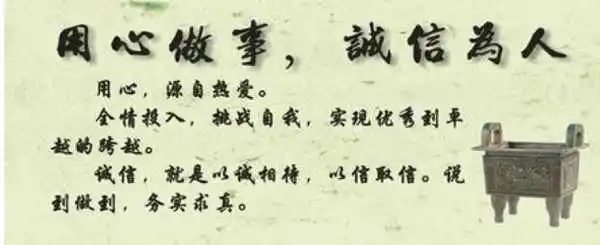 用心做事，誠信為人
用心，源自热爱。
全情投入，挑战自我，实现优秀到卓
越的跨越。
诚信，就是以诚相待，以信取信。说
到做到，务实求真。